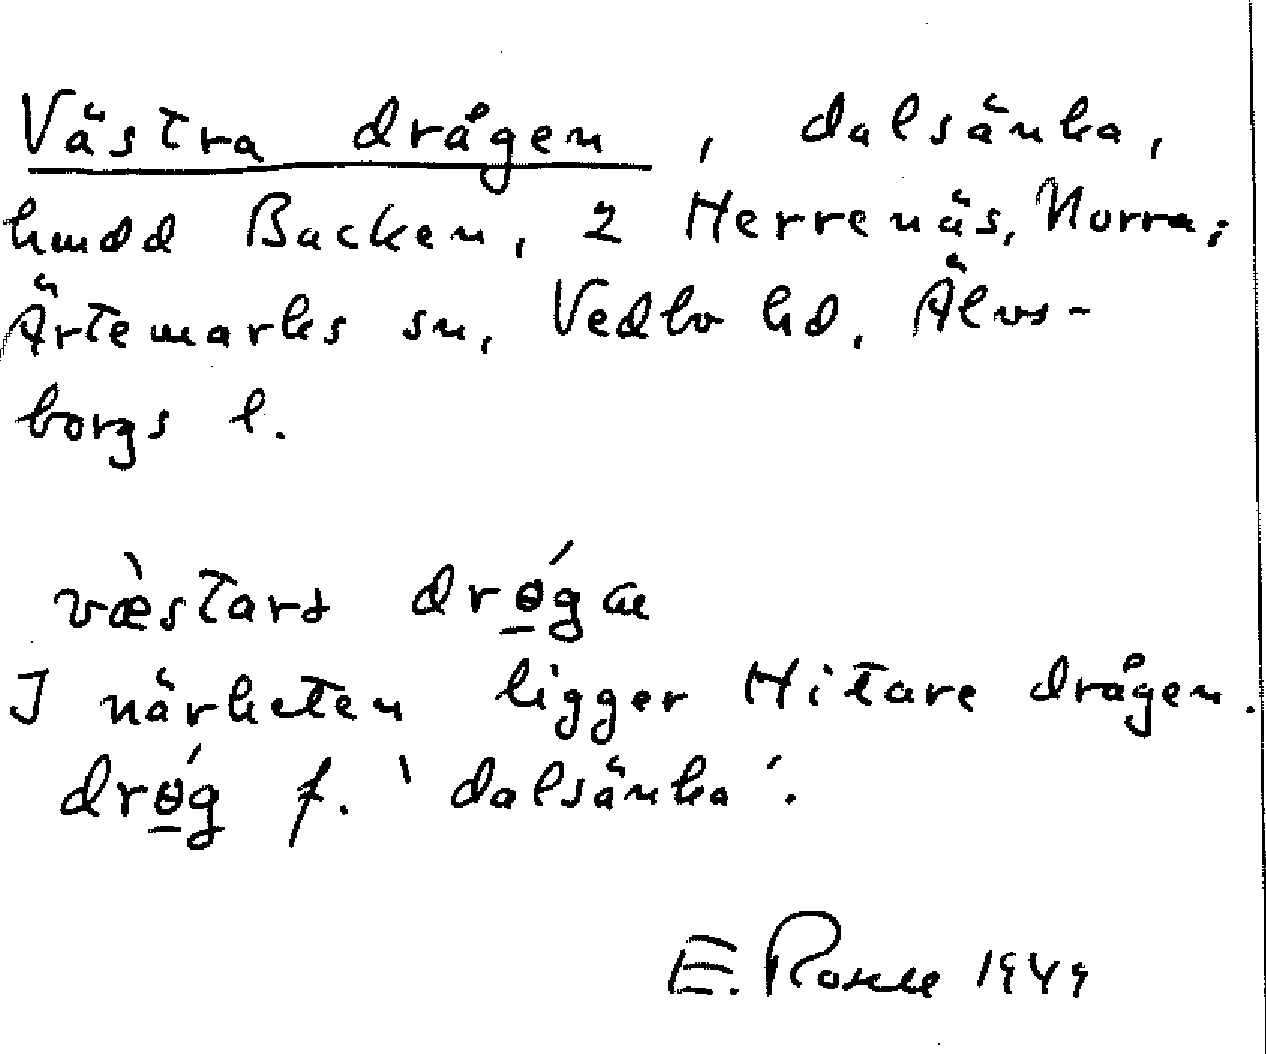 Västra drågen, dalsänka,
hmdd Backen, 2 Herrenäs, Norra;
Ärtemarks sn, Vedbo hd, Älvs-
borgs l.
væ̀stars drǿ̱gæ
I närheten ligger Hitare drågen.
drǿ̱g f. 'dalsänka'.
E. Rosell 1949